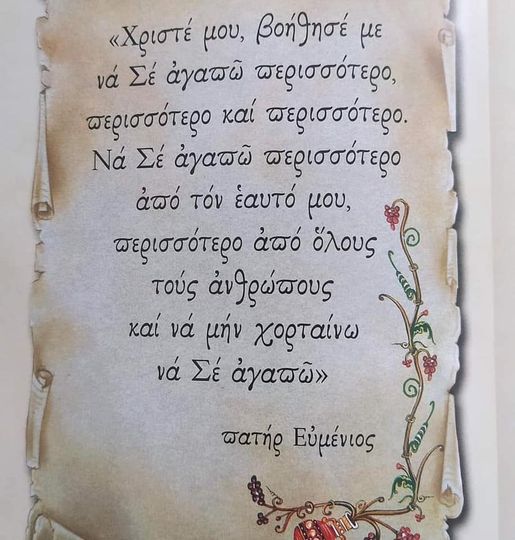 «Χριστέ μου, βοήθησέ με
νά Σέ ἀγαπῶ περισσότερο,
περισσότερο καί περισσότερο.
Νά Σέ ἀγαπῶ περισσότερο
ἀπό τόν ἑαυτό μου,
περισσότερο ἀπό ὅλους
τούς ἀνθρώπους
καί νά μήν χορταίνω
νά Σέ ἀγαπῶ»
πατήρ Εὐμένιος